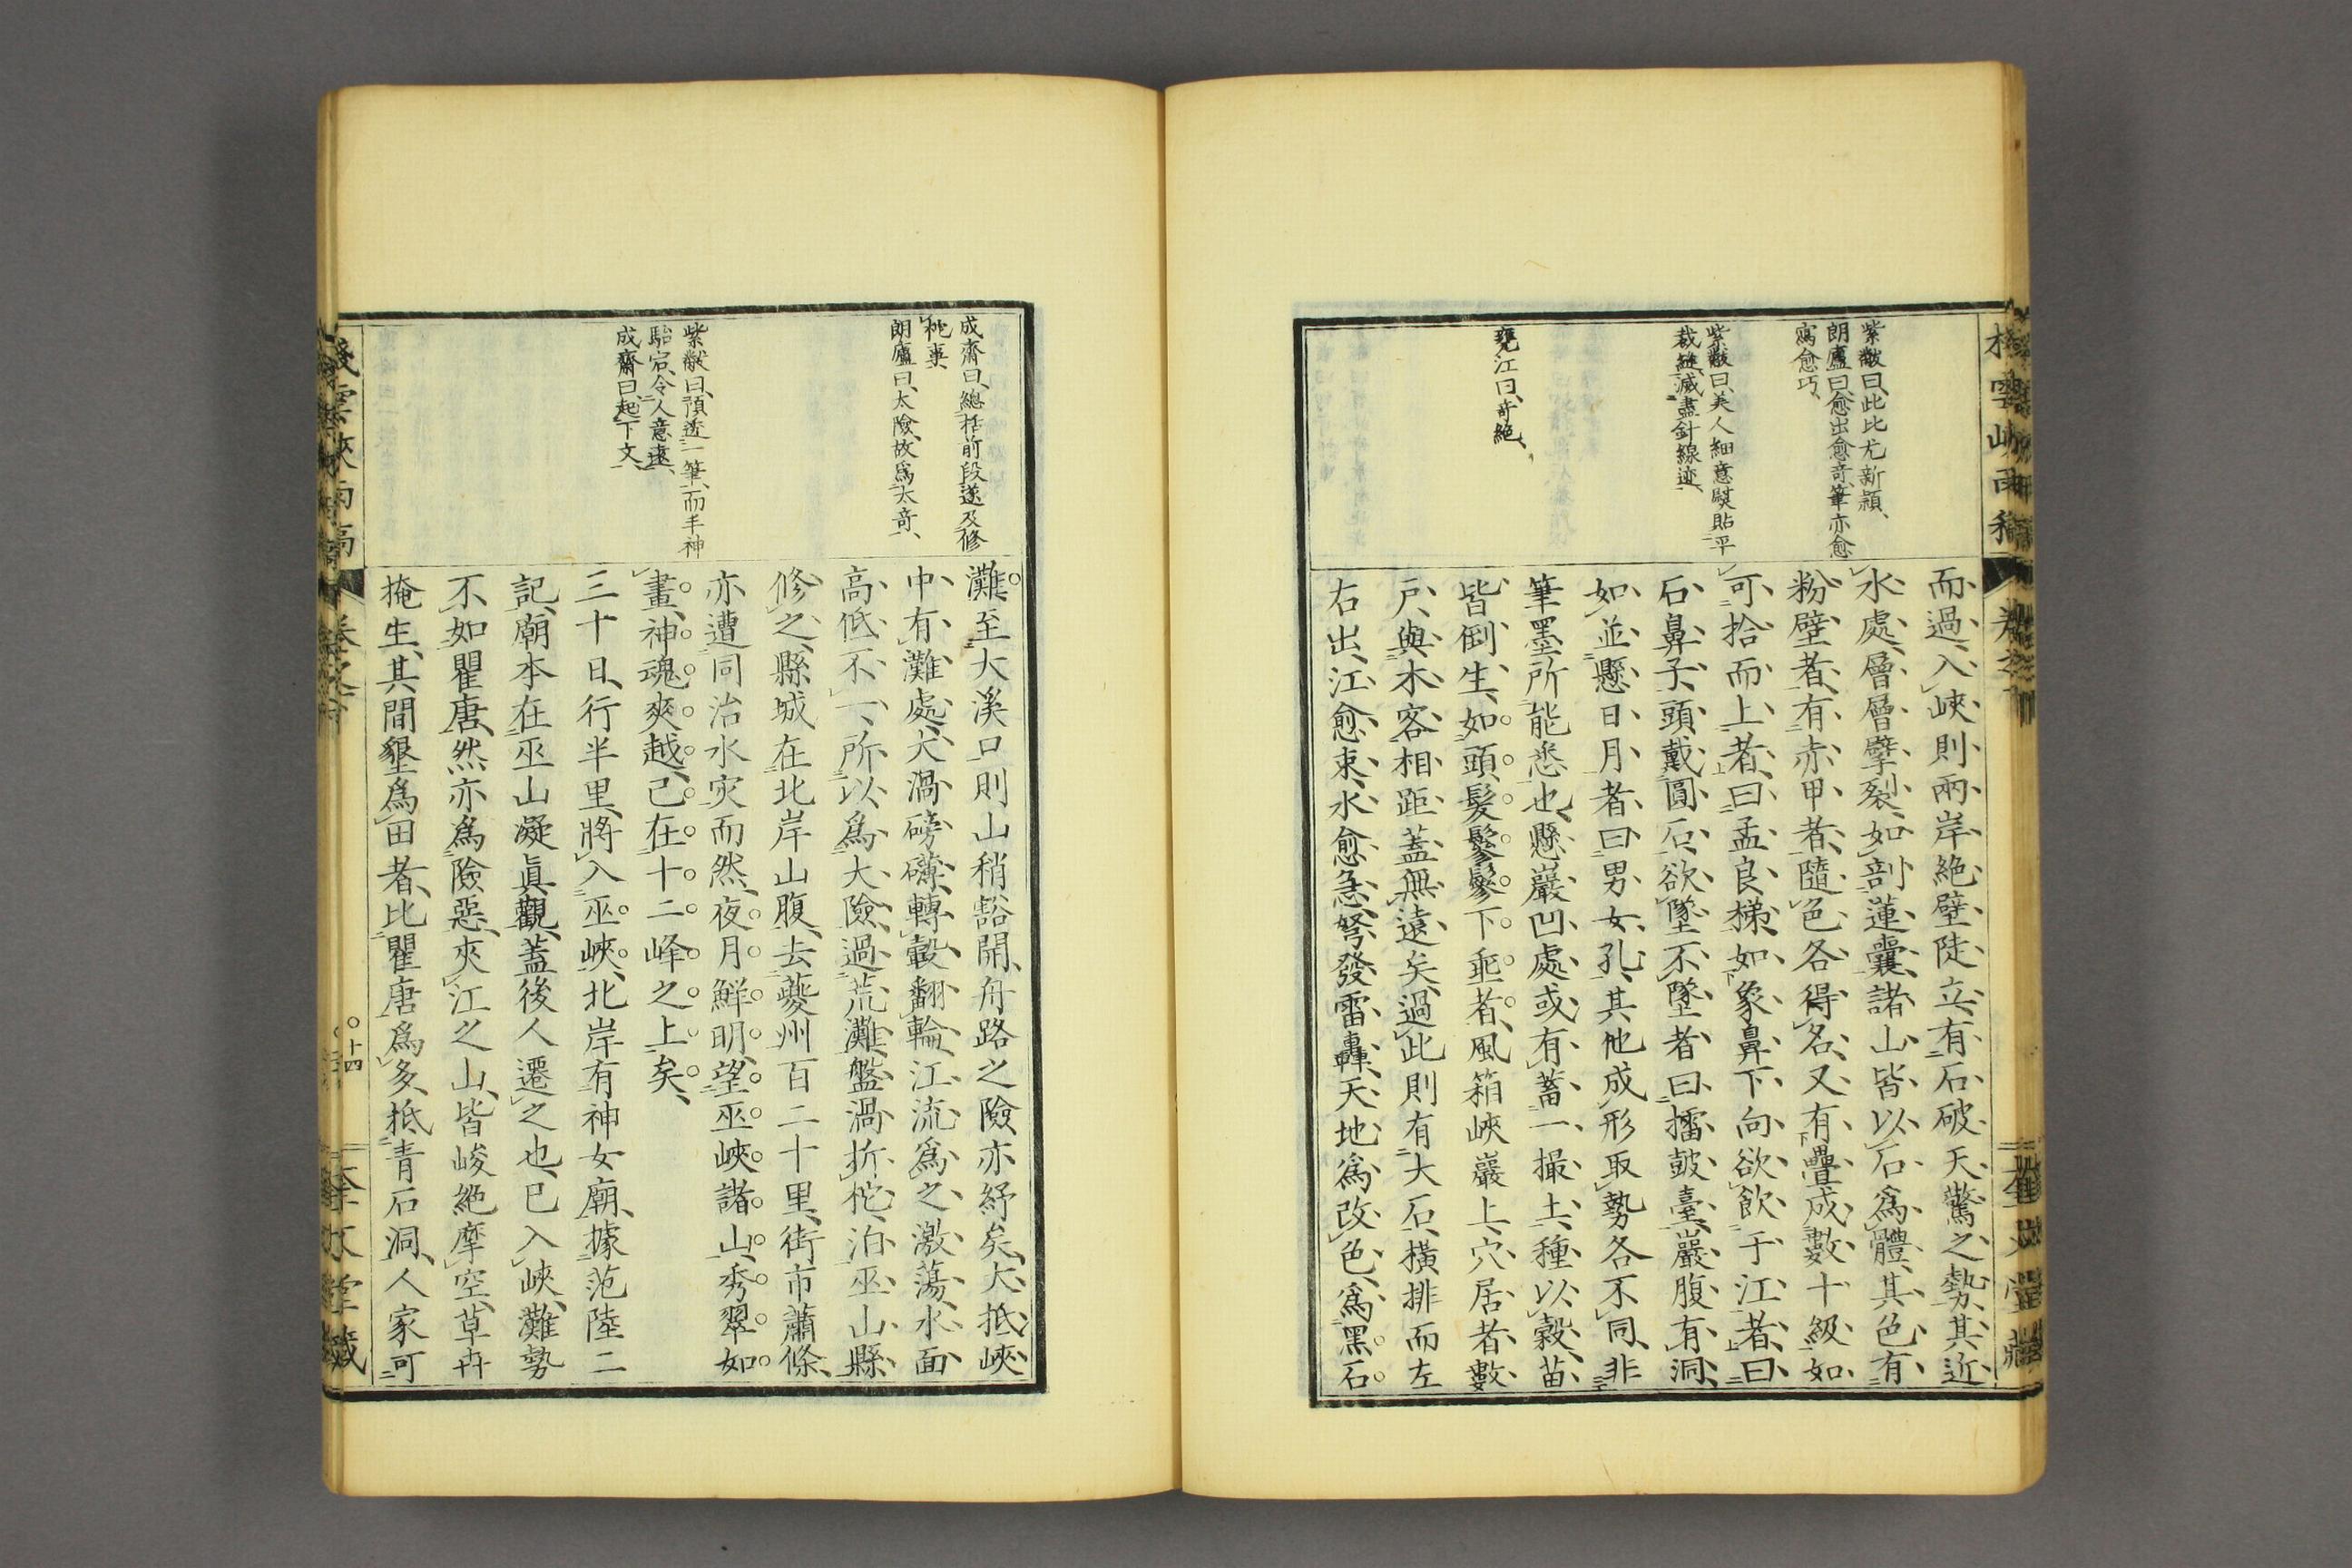 紫猷曰、此比尤新穎、
朗廬曰、愈出愈奇、筆亦愈
寫愈巧、
紫猷曰、美人細意熨貼平
裁縫滅盡針線迹、
甕江曰、奇絶、
而過、入峽則兩岸絶壁陡立、有石破天驚之勢、其近
水處、層層擘裂、如剖蓮囊、諸山皆以石爲體、其色有
粉壁者、有赤甲者、隨色各得名、又有疊成數十級、如
可拾而上者、曰孟良梯、如象鼻下向欲飮于江者、曰
石鼻子、頭戴圓石、欲墜不墜者曰擂鼓臺、巖腹有洞、
如並懸日月者曰男女孔、其他成形取勢各不同、非
筆墨所能悉也、懸巖凹處或有蓄一撮土、種以穀苗、
皆倒生、如頭髮鬖鬖下垂者、風箱峽巖上、穴居者數
戶、與木客相距蓋無遠矣、過此則有大石、橫排而左
右出、江愈束、水愈急、弩發雷轟、天地爲改色、爲黑石
成齋曰、總括前段遂及修
桃事
朗廬曰、太險、故爲太奇、
紫猷曰、預透一筆、而丰神
駘宕、令人意遠、
成齋曰、起下文、
灘至大溪口則山稍豁開、舟路之險亦紓矣、大抵峽
中有灘處、大渦磅礴、轉轂翻輪、江流爲之激蕩、水面
高低不一、所以爲大險、過荒灘、盤渦折柁、泊巫山縣
修之、縣城在北岸山腹、去夔州百二十里、街市蕭條、
亦遭同治水灾而然、夜月鮮明、望巫峽諸山、秀翠如
畫、神魂爽越、已在十二峰之上矣、
三十日、行半里、將入巫峽、北岸有神女廟、據范陸二
記、廟本在巫山凝眞觀、蓋後人遷之也、已入峽、灘勢
不如瞿唐、然亦爲險惡、夾江之山、皆峻絶摩空、草卉
掩生、其間墾爲田者、比瞿唐爲多、抵青石洞、人家可
十四